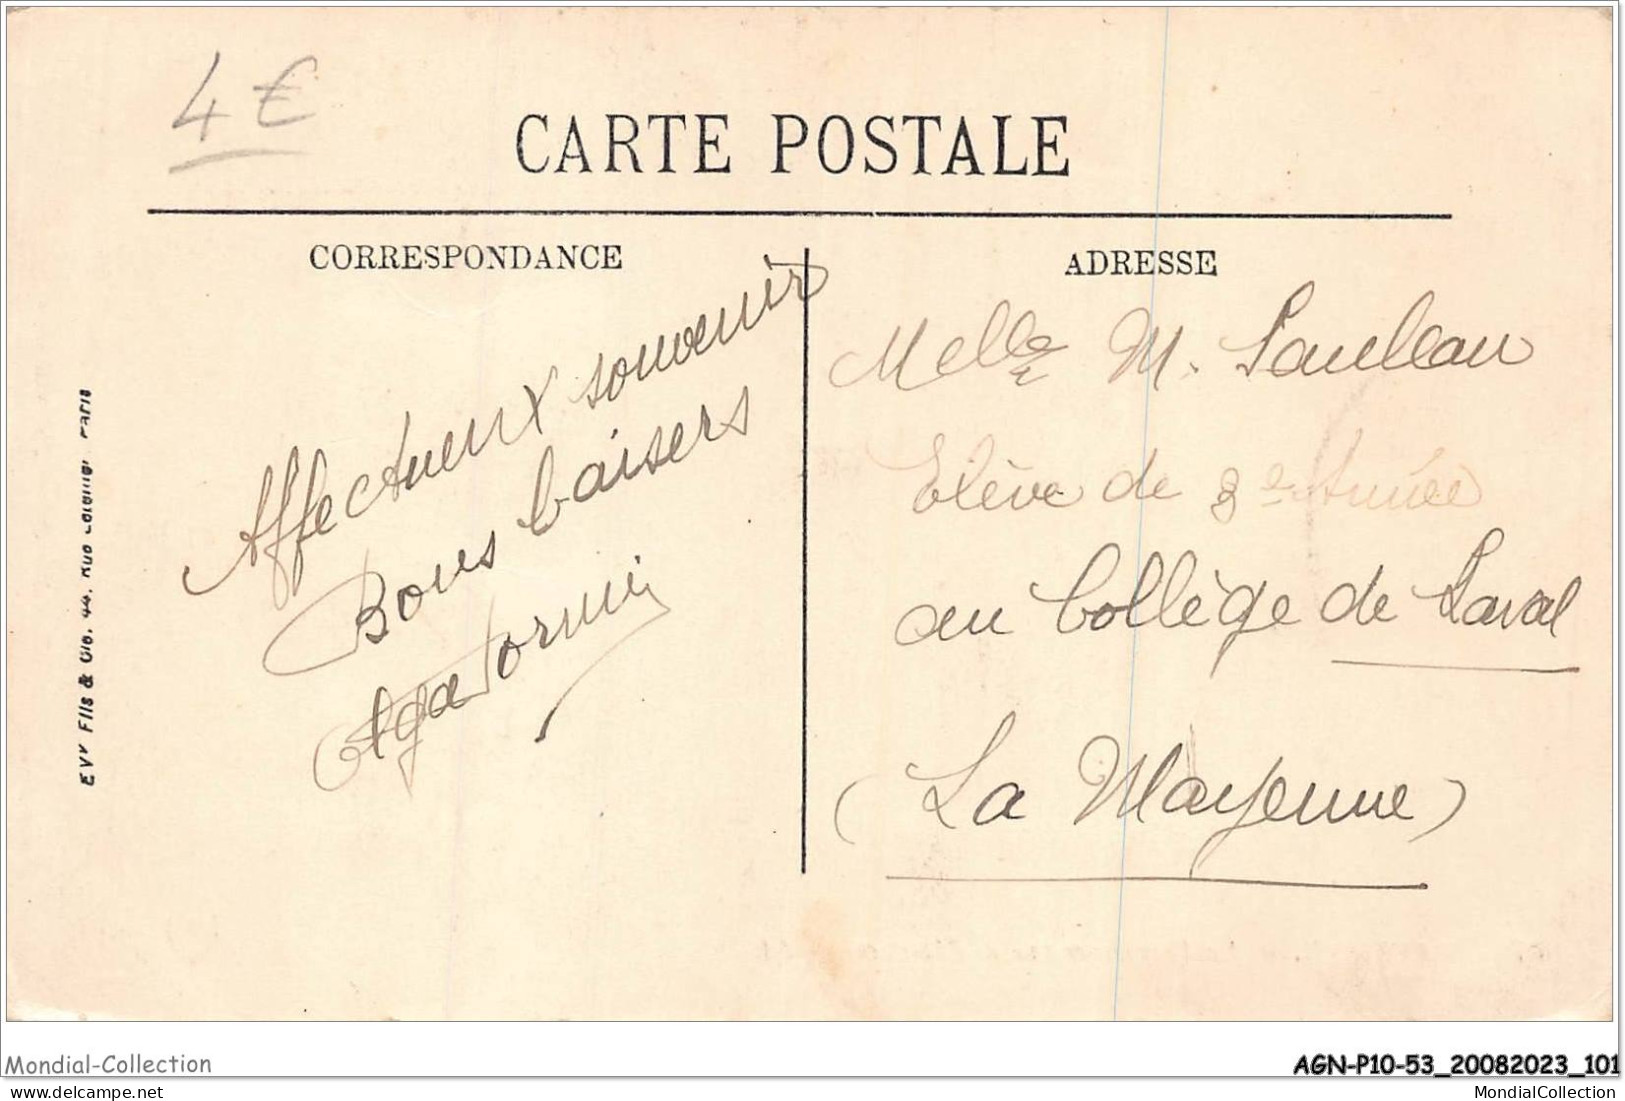 4 €
CARTE POSTALE
CORRESPONDANCE
ADRESSE
Affectueux souvenir
Bons baisers
Melle M.
Elève de 3e Année
au Collège de Laval
(La Mayenne)
Fils & Cie. 44. Rue PARIS
Mondial-Collection
AGN-P10-53_20082023_101
delcampe.net
MondialCollection